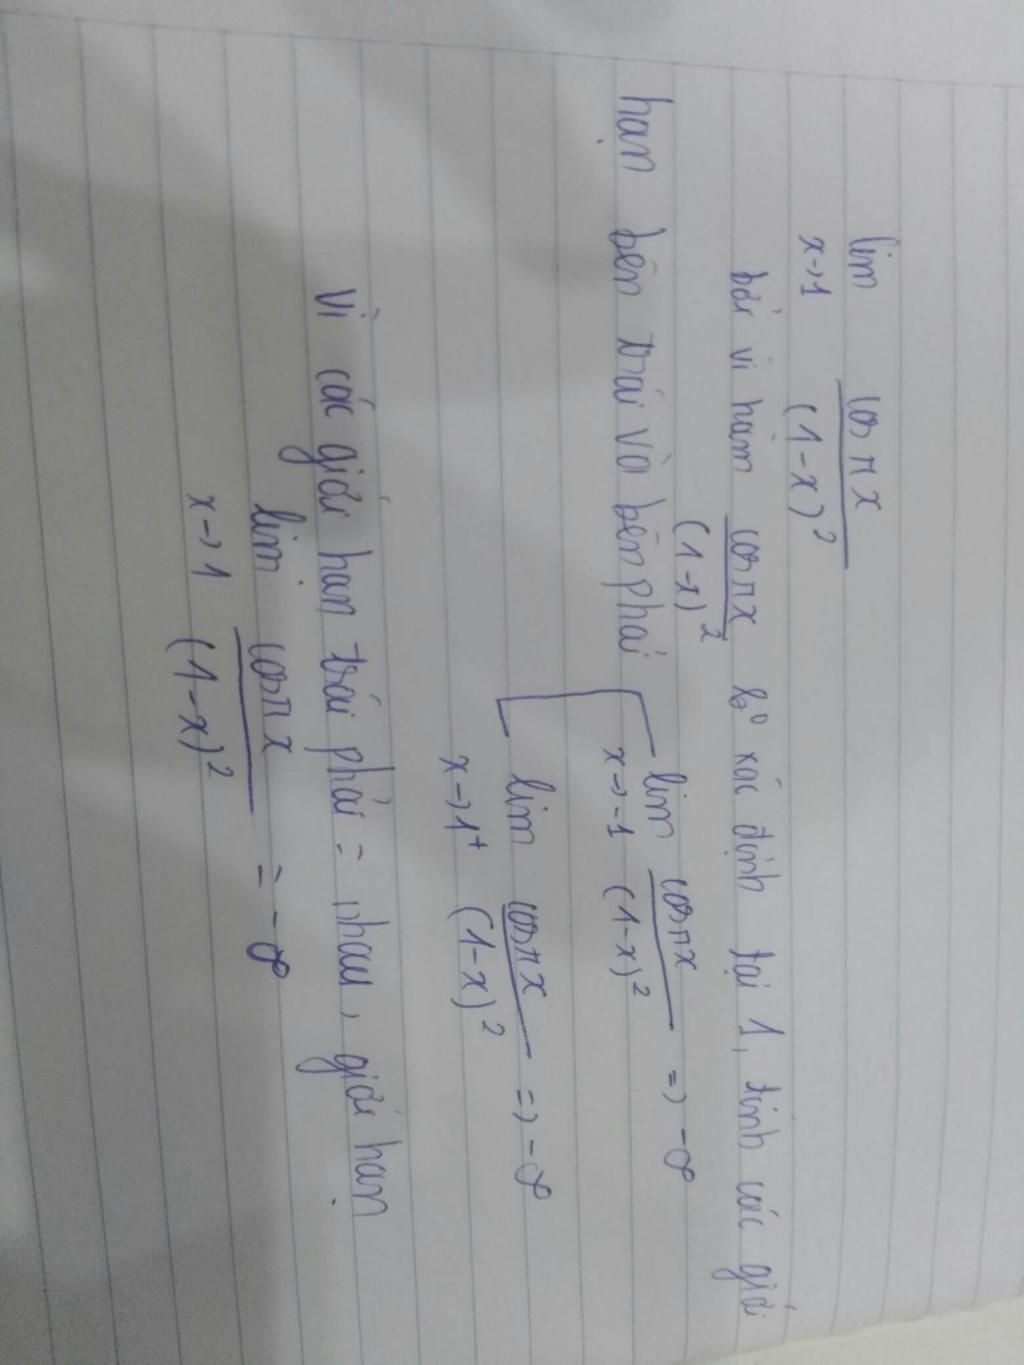 lim cos πx
x→1 (1-x)²
bởi vì hàm cosπx k⁰ xác định tại 1, tính các giới
(1-x)²
hạn bên trái và bên phải lim cosπx => -∞
x→-1 (1-x)²
lim cosπx => -∞
x→1⁺ (1-x)²
Vì các giới hạn trái phải = nhau, giới hạn
lim cosπx = -∞
x→1 (1-x)²